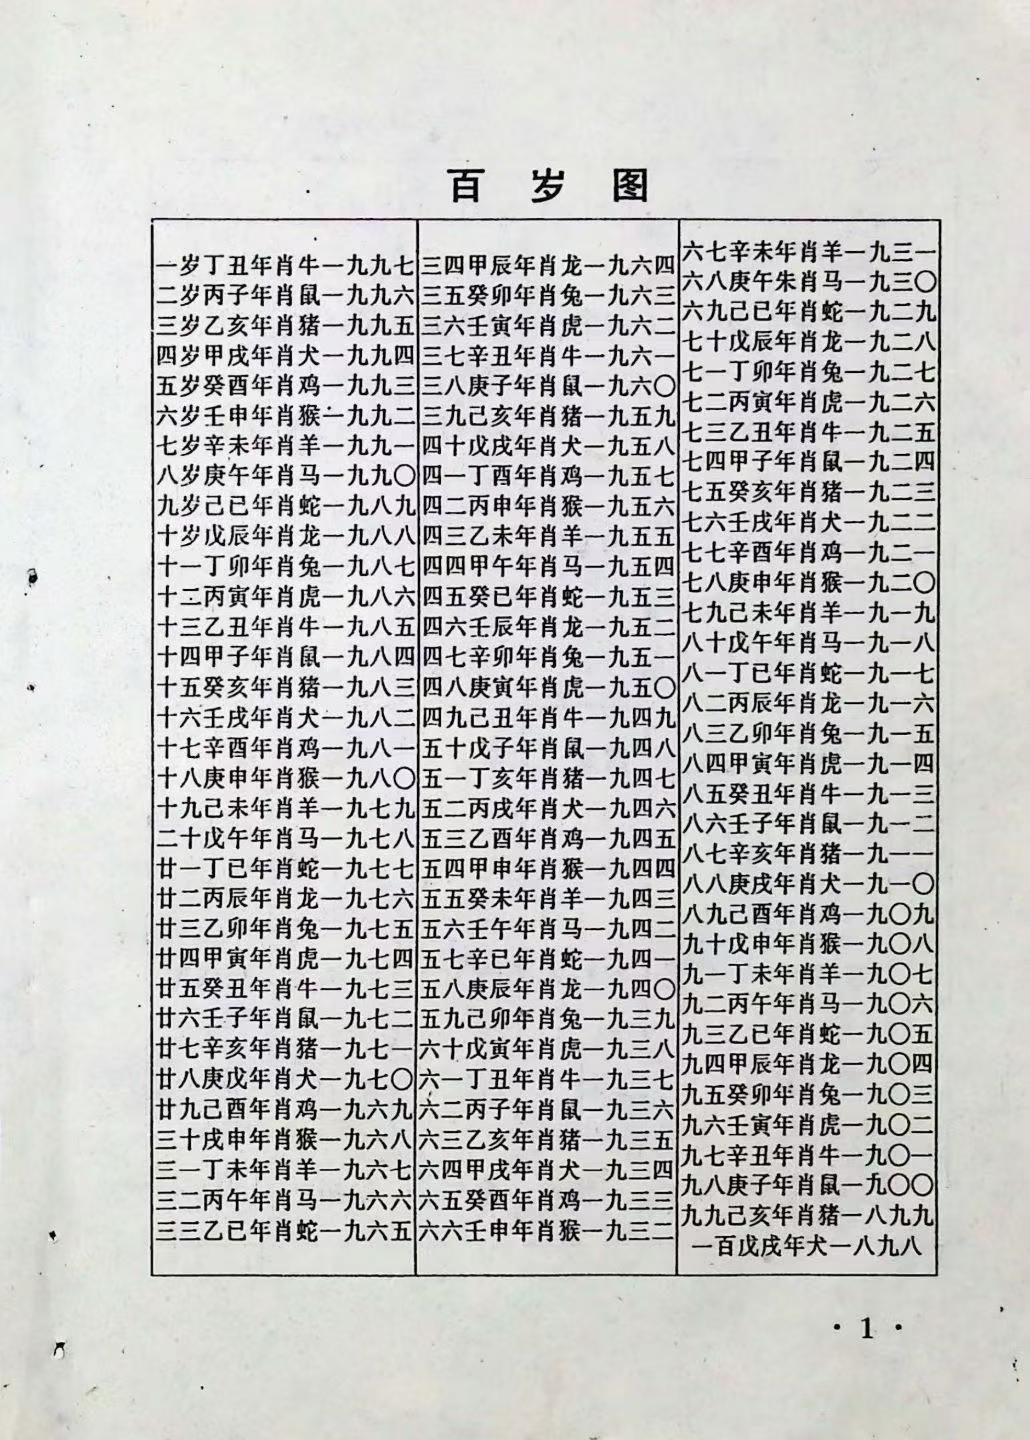 百岁图
一岁丁丑年肖牛一九九七
二岁丙子年肖鼠一九九六
三岁乙亥年肖猪一九九五
四岁甲戌年肖犬一九九四
五岁癸酉年肖鸡一九九三
六岁壬申年肖猴一九九二
七岁辛未年肖羊一九九一
八岁庚午年肖马一九九〇
九岁己巳年肖蛇一九八九
十岁戊辰年肖龙一九八八
十一丁卯年肖兔一九八七
十二丙寅年肖虎一九八六
十三乙丑年肖牛一九八五
十四甲子年肖鼠一九八四
十五癸亥年肖猪一九八三
十六壬戌年肖犬一九八二
十七辛酉年肖鸡一九八一
十八庚申年肖猴一九八〇
十九己未年肖羊一九七九
二十戊午年肖马一九七八
廿一丁巳年肖蛇一九七七
廿二丙辰年肖龙一九七六
廿三乙卯年肖兔一九七五
廿四甲寅年肖虎一九七四
廿五癸丑年肖牛一九七三
廿六壬子年肖鼠一九七二
廿七辛亥年肖猪一九七一
廿八庚戊年肖犬一九七〇
廿九己酉年肖鸡一九六九
三十戌申年肖猴一九六八
三一丁未年肖羊一九六七
三二丙午年肖马一九六六
三三乙巳年肖蛇一九六五
三四甲辰年肖龙一九六四
三五癸卯年肖兔一九六三
三六壬寅年肖虎一九六二
三七辛丑年肖牛一九六一
三八庚子年肖鼠一九六〇
三九己亥年肖猪一九五九
四十戊戌年肖犬一九五八
四一丁酉年肖鸡一九五七
四二丙申年肖猴一九五六
四三乙未年肖羊一九五五
四四甲午年肖马一九五四
四五癸巳年肖蛇一九五三
四六壬辰年肖龙一九五二
四七辛卯年肖兔一九五一
四八庚寅年肖虎一九五〇
四九己丑年肖牛一九四九
五十戊子年肖鼠一九四八
五一丁亥年肖猪一九四七
五二丙戌年肖犬一九四六
五三乙酉年肖鸡一九四五
五四甲申年肖猴一九四四
五五癸未年肖羊一九四三
五六壬午年肖马一九四二
五七辛巳年肖蛇一九四一
五八庚辰年肖龙一九四〇
五九己卯年肖兔一九三九
六十戊寅年肖虎一九三八
六一丁丑年肖牛一九三七
六二丙子年肖鼠一九三六
六三乙亥年肖猪一九三五
六四甲戌年肖犬一九三四
六五癸酉年肖鸡一九三三
六六壬申年肖猴一九三二
六七辛未年肖羊一九三一
六八庚午朱肖马一九三〇
六九己巳年肖蛇一九二九
七十戊辰年肖龙一九二八
七一丁卯年肖兔一九二七
七二丙寅年肖虎一九二六
七三乙丑年肖牛一九二五
七四甲子年肖鼠一九二四
七五癸亥年肖猪一九二三
七六壬戌年肖犬一九二二
七七辛酉年肖鸡一九二一
七八庚申年肖猴一九二〇
七九己未年肖羊一九一九
八十戊午年肖马一九一八
八一丁巳年肖蛇一九一七
八二丙辰年肖龙一九一六
八三乙卯年肖兔一九一五
八四甲寅年肖虎一九一四
八五癸丑年肖牛一九一三
八六壬子年肖鼠一九一二
八七辛亥年肖猪一九一一
八八庚戌年肖犬一九一〇
八九己酉年肖鸡一九〇九
九十戊申年肖猴一九〇八
九一丁未年肖羊一九〇七
九二丙午年肖马一九〇六
九三乙巳年肖蛇一九〇五
九四甲辰年肖龙一九〇四
九五癸卯年肖兔一九〇三
九六壬寅年肖虎一九〇二
九七辛丑年肖牛一九〇一
九八庚子年肖鼠一九〇〇
九九己亥年肖猪一八九九
一百戊戌年犬一八九八
·1·